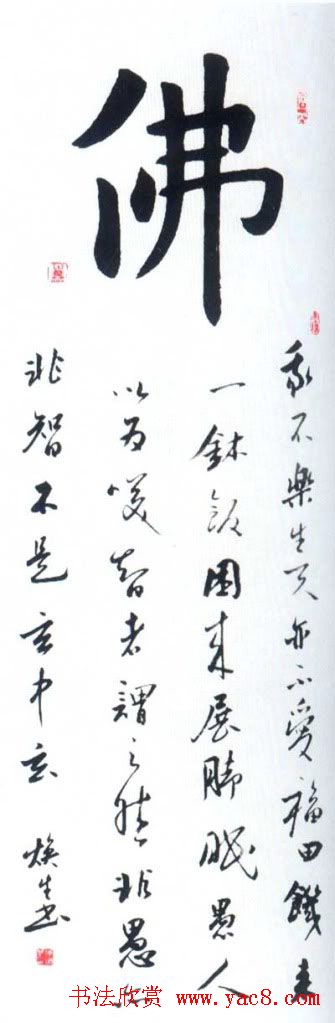 佛
我不樂生天亦不愛福田饑来
一鉢飯困来展脚眠愚人
以为咲智者謂之然非愚亦
非智不是玄中玄 焕生书
书法欣赏 www.yac8.com